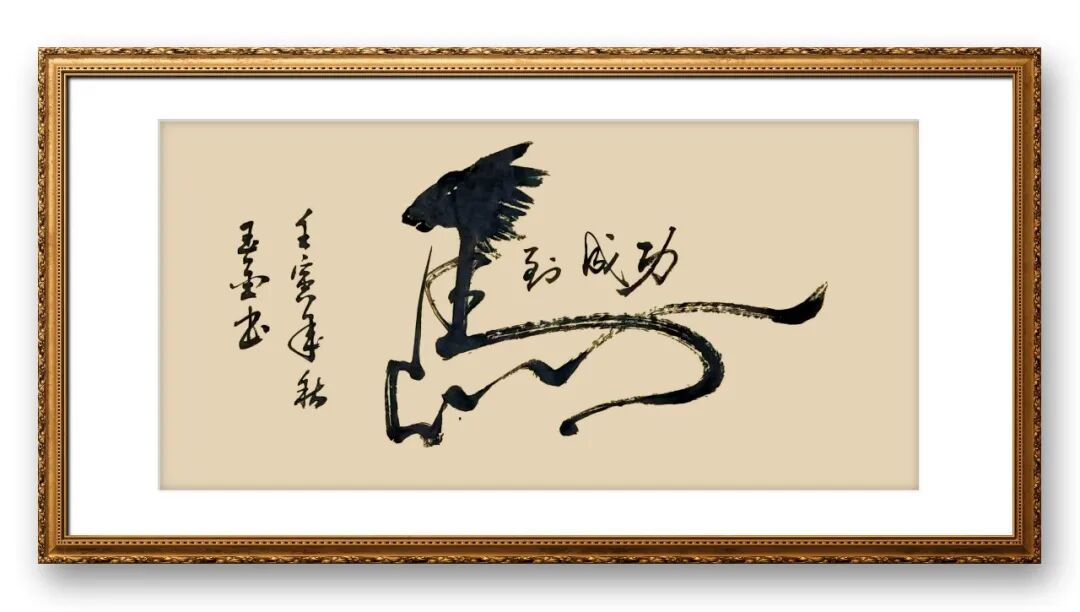 馬到成功
壬寅年秋
书